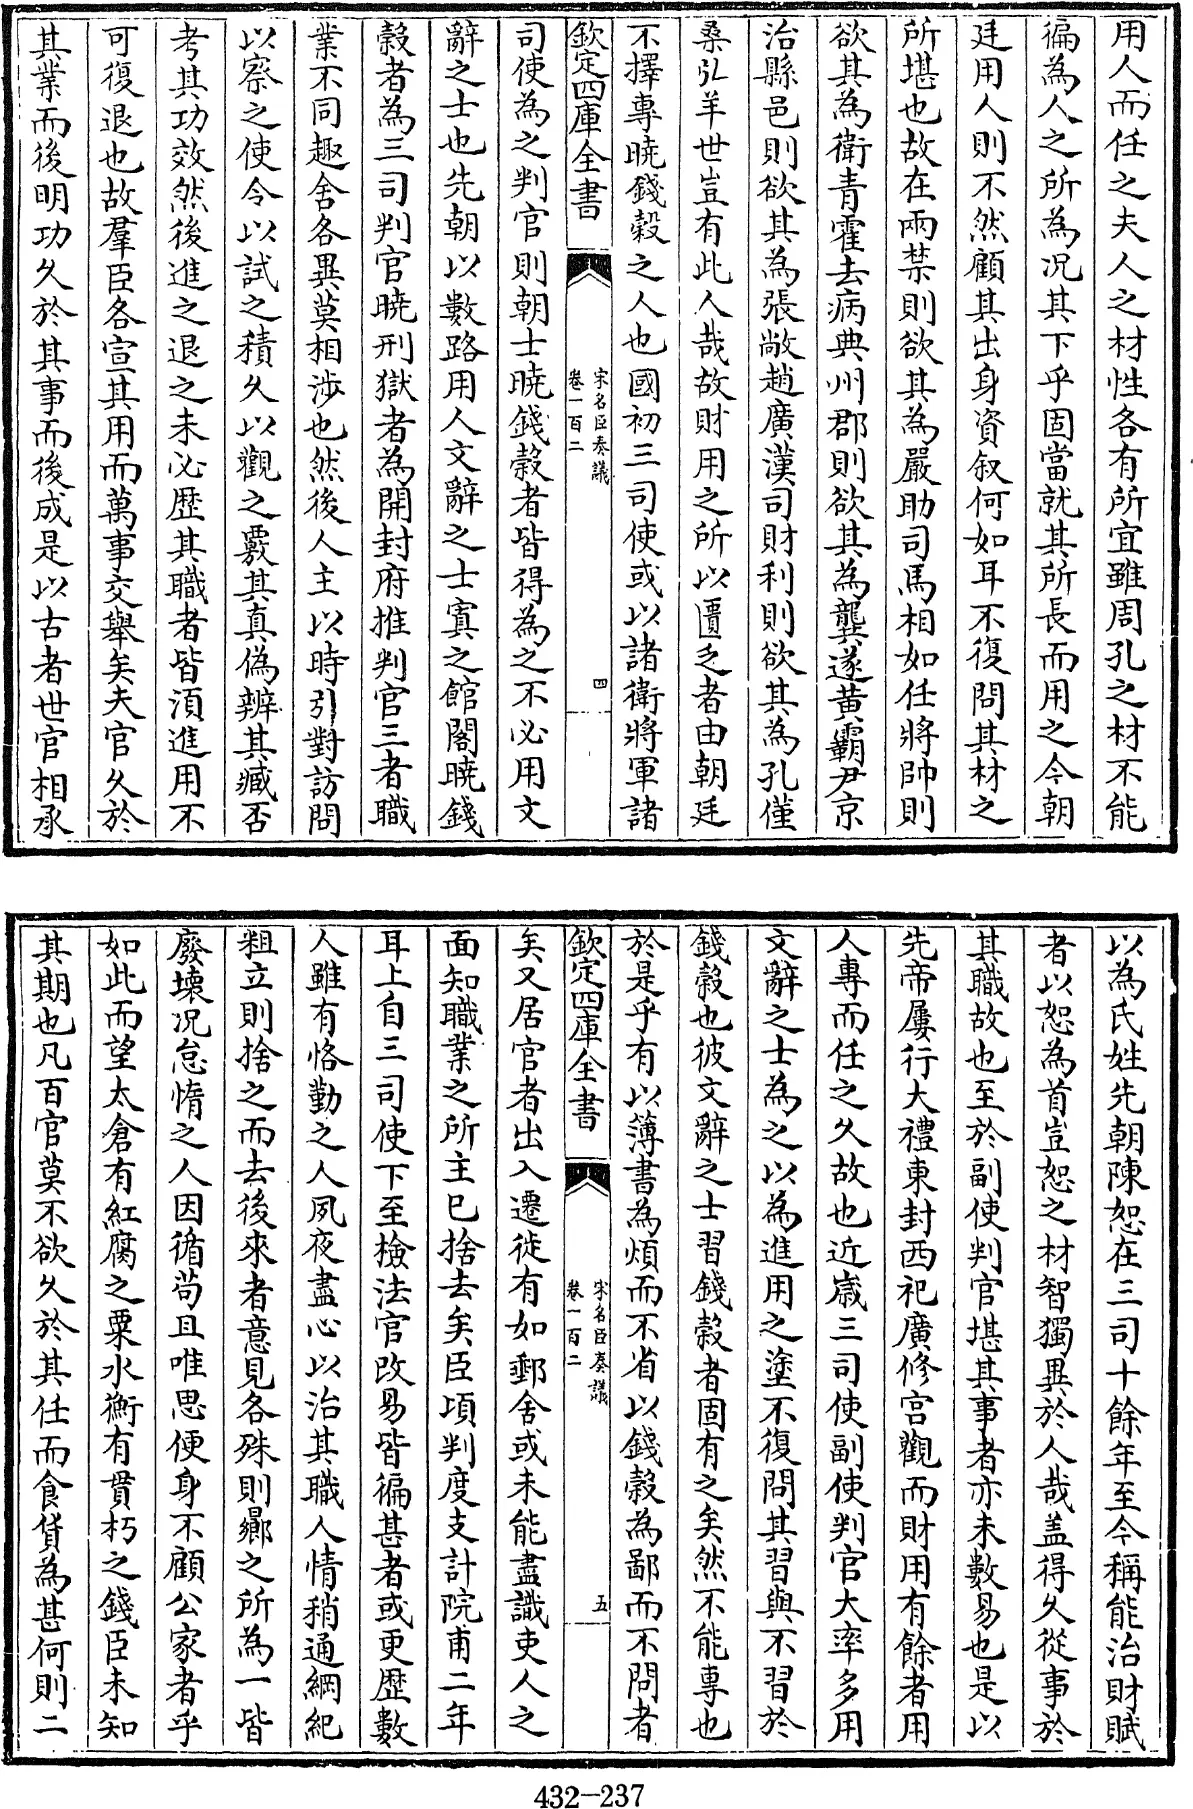 用人而任之夫人之材性各有所宜雖周孔之材不能
徧為人之所為况其下乎固當就其所長而用之今朝
廷用人則不然顧其出身資叙何如耳不復問其材之
所堪也故在兩禁則欲其為嚴助司馬相如任將帥則
欲其為衛青霍去病典州郡則欲其為龔遂黄霸尹京
治縣邑則欲其為張敞趙廣漢司財利則欲其為孔僅
桑弘羊世豈有此人哉故財用之所以匱乏者由朝廷
不擇專曉錢穀之人也國初三司使或以諸衛將軍諸
欽定四庫全書
宋名臣奏議
卷一百二
四
司使為之判官則朝士曉錢穀者皆得為之不必用文
辭之士也先朝以數路用人文辭之士寘之館閣曉錢
穀者為三司判官曉刑獄者為開封府推判官三者職
業不同趣舍各異莫相涉也然後人主以時引對訪問
以察之使令以試之積久以觀之覈其真偽辨其臧否
考其功效然後進之退之未必歴其職者皆須進用不
可復退也故羣臣各宣其用而萬事交舉矣夫官久於
其業而後明功久於其事而後成是以古者世官相承
以為氏姓先朝陳恕在三司十餘年至今稱能治財賦
者以恕為首豈恕之材智獨異於人哉盖得久從事於
其職故也至於副使判官堪其事者亦未數易也是以
先帝屢行大禮東封西祀廣修宫觀而財用有餘者用
人專而任之久故也近嵗三司使副使判官大率多用
文辭之士為之以為進用之塗不復問其習與不習於
錢穀也彼文辭之士習錢穀者固有之矣然不能專也
於是乎有以簿書為煩而不省以錢穀為鄙而不問者
欽定四庫全書
宋名臣奏議
卷一百二
五
矣又居官者出入遷徙有如郵舍或未能盡識吏人之
面知職業之所主已捨去矣臣頃判度支計院甫二年
耳上自三司使下至檢法官改易皆徧甚者或更歴數
人雖有恪勤之人夙夜盡心以治其職人情稍通綱紀
粗立則捨之而去後來者意見各殊則曏之所為一皆
廢壞况怠惰之人因循苟且唯思便身不顧公家者乎
如此而望太倉有紅腐之粟水衡有貫朽之錢臣未知
其期也凡百官莫不欲久於其任而食貨為甚何則二
432-237